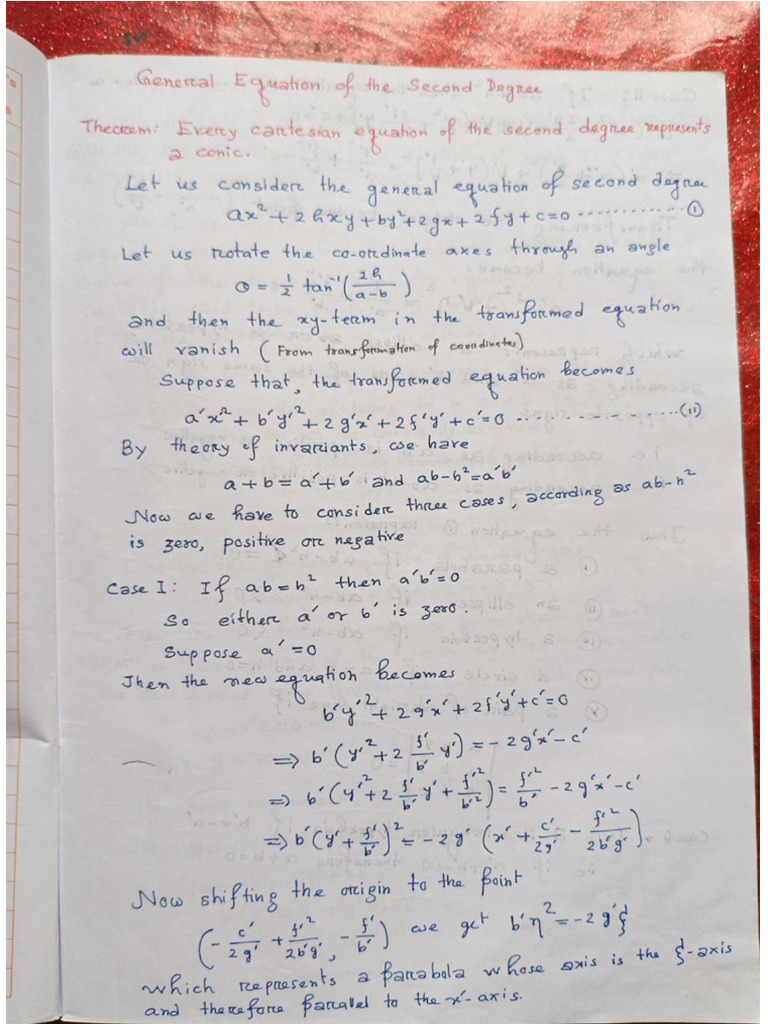 General Equation of the Second Degree
Theorem: Every cartesian equation of the second degree represents
a conic.
Let us consider the general equation of second degree
ax² + 2hxy + by² + 2gx + 2fy + c = 0 ............... (I)
Let us rotate the co-ordinate axes through an angle
θ = ½ tan⁻¹(2h/(a-b))
and then the xy-term in the transformed equation
will vanish (From transformation of coordinates)
Suppose that, the transformed equation becomes
a′x′² + b′y′² + 2g′x′ + 2f′y′ + c′ = 0 ............... (II)
By theory of invariants, we have
a + b = a′ + b′ and ab-h² = a′b′
Now we have to consider three cases, according as ab-h²
is zero, positive or negative
Case I: If ab = h² then a′b′ = 0
So either a′ or b′ is zero.
Suppose a′ = 0
Then the new equation becomes
b′y′² + 2g′x′ + 2f′y′ + c′ = 0
⇒ b′(y′² + 2 f′/b′ y′) = - 2g′x′ - c′
⇒ b′(y′² + 2 f′/b′ y′ + f′²/b′²) = f′²/b′ - 2g′x′ - c′
⇒ b′(y′ + f′/b′)² = - 2g′ (x′ + c′/2g′ - f′²/2b′g′)
Now shifting the origin to the point
(- c′/2g′ + f′²/2b′g′, - f′/b′) we get b′η² = - 2g′ξ
which represents a parabola whose axis is the ξ-axis
and therefore parallel to the x′-axis.